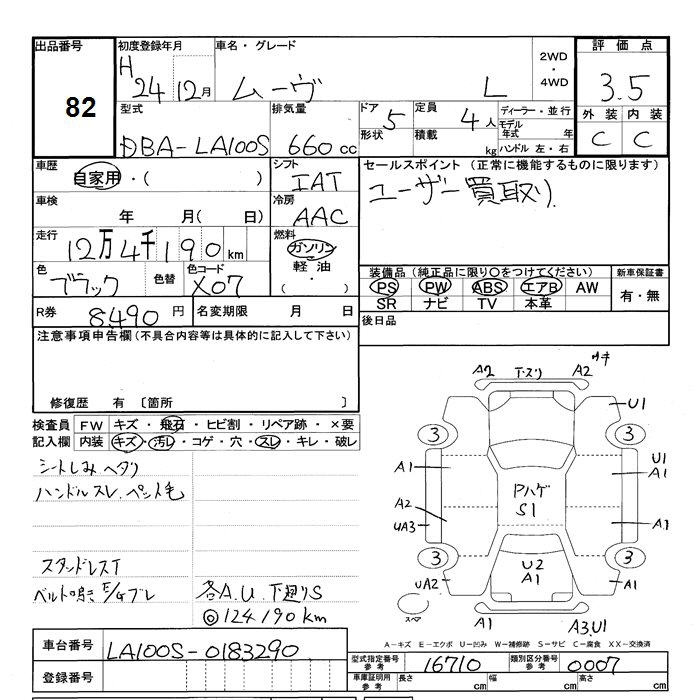 出品番号 初度登録年月 車名・グレード 2WD ・ 4WD 評価点
82 H 24 12月 ムーヴ L 3.5
型式 排気量 ドア 5 定員 4人 ディーラー・並行 外装 内装
DBA-LA100S 660cc 形状 積載 kg モデル年式 年 C C
ハンドル 左・右
車歴 自家用・( ) シフト IAT セールスポイント (正常に機能するものに限ります)
車検 年 月( 日) 冷房 AAC ユーザー買取り
走行 12万4千190km 燃料 ガソリン
軽油
( ・ )
色 ブラック 色替 色コード X07 装備品(純正品に限り○をつけてください) 新車保証書
PS PW ABS エアB AW 有・無
SR ナビ TV 本革
R券 8490円 名変期限 月 日 後日品
注意事項申告欄(不具合内容等は具体的に記入して下さい)
修復歴 有 〔箇所 〕
検査員 FW キズ・飛石・ヒビ割・リペア跡・×要
記入欄 内装 キズ・汚レ・コゲ・穴・スレ・キレ・破レ
シートしみヘタリ
ハンドルスレ.ペット毛
スタンドレスT
ベルト鳴き E/Gブレ 各A.U.下廻りS
◎124190km
A2 T.スリ A2 サキ
U1
3 3
A1 U1 A1
PハゲS1
A2 UA3 A1
3 3
U2 A1
UA2 A1
スペア A1 A3.U1
A-キズ E-エクボ U-凹み W-補修跡 S-サビ C-腐食 XX-交換済
車台番号 LA100S-0183290 型式指定番号 参考 16710 類別区分番号 参考 0007
登録番号 車庫証明用 参考 長さ cm 幅 cm 高さ cm